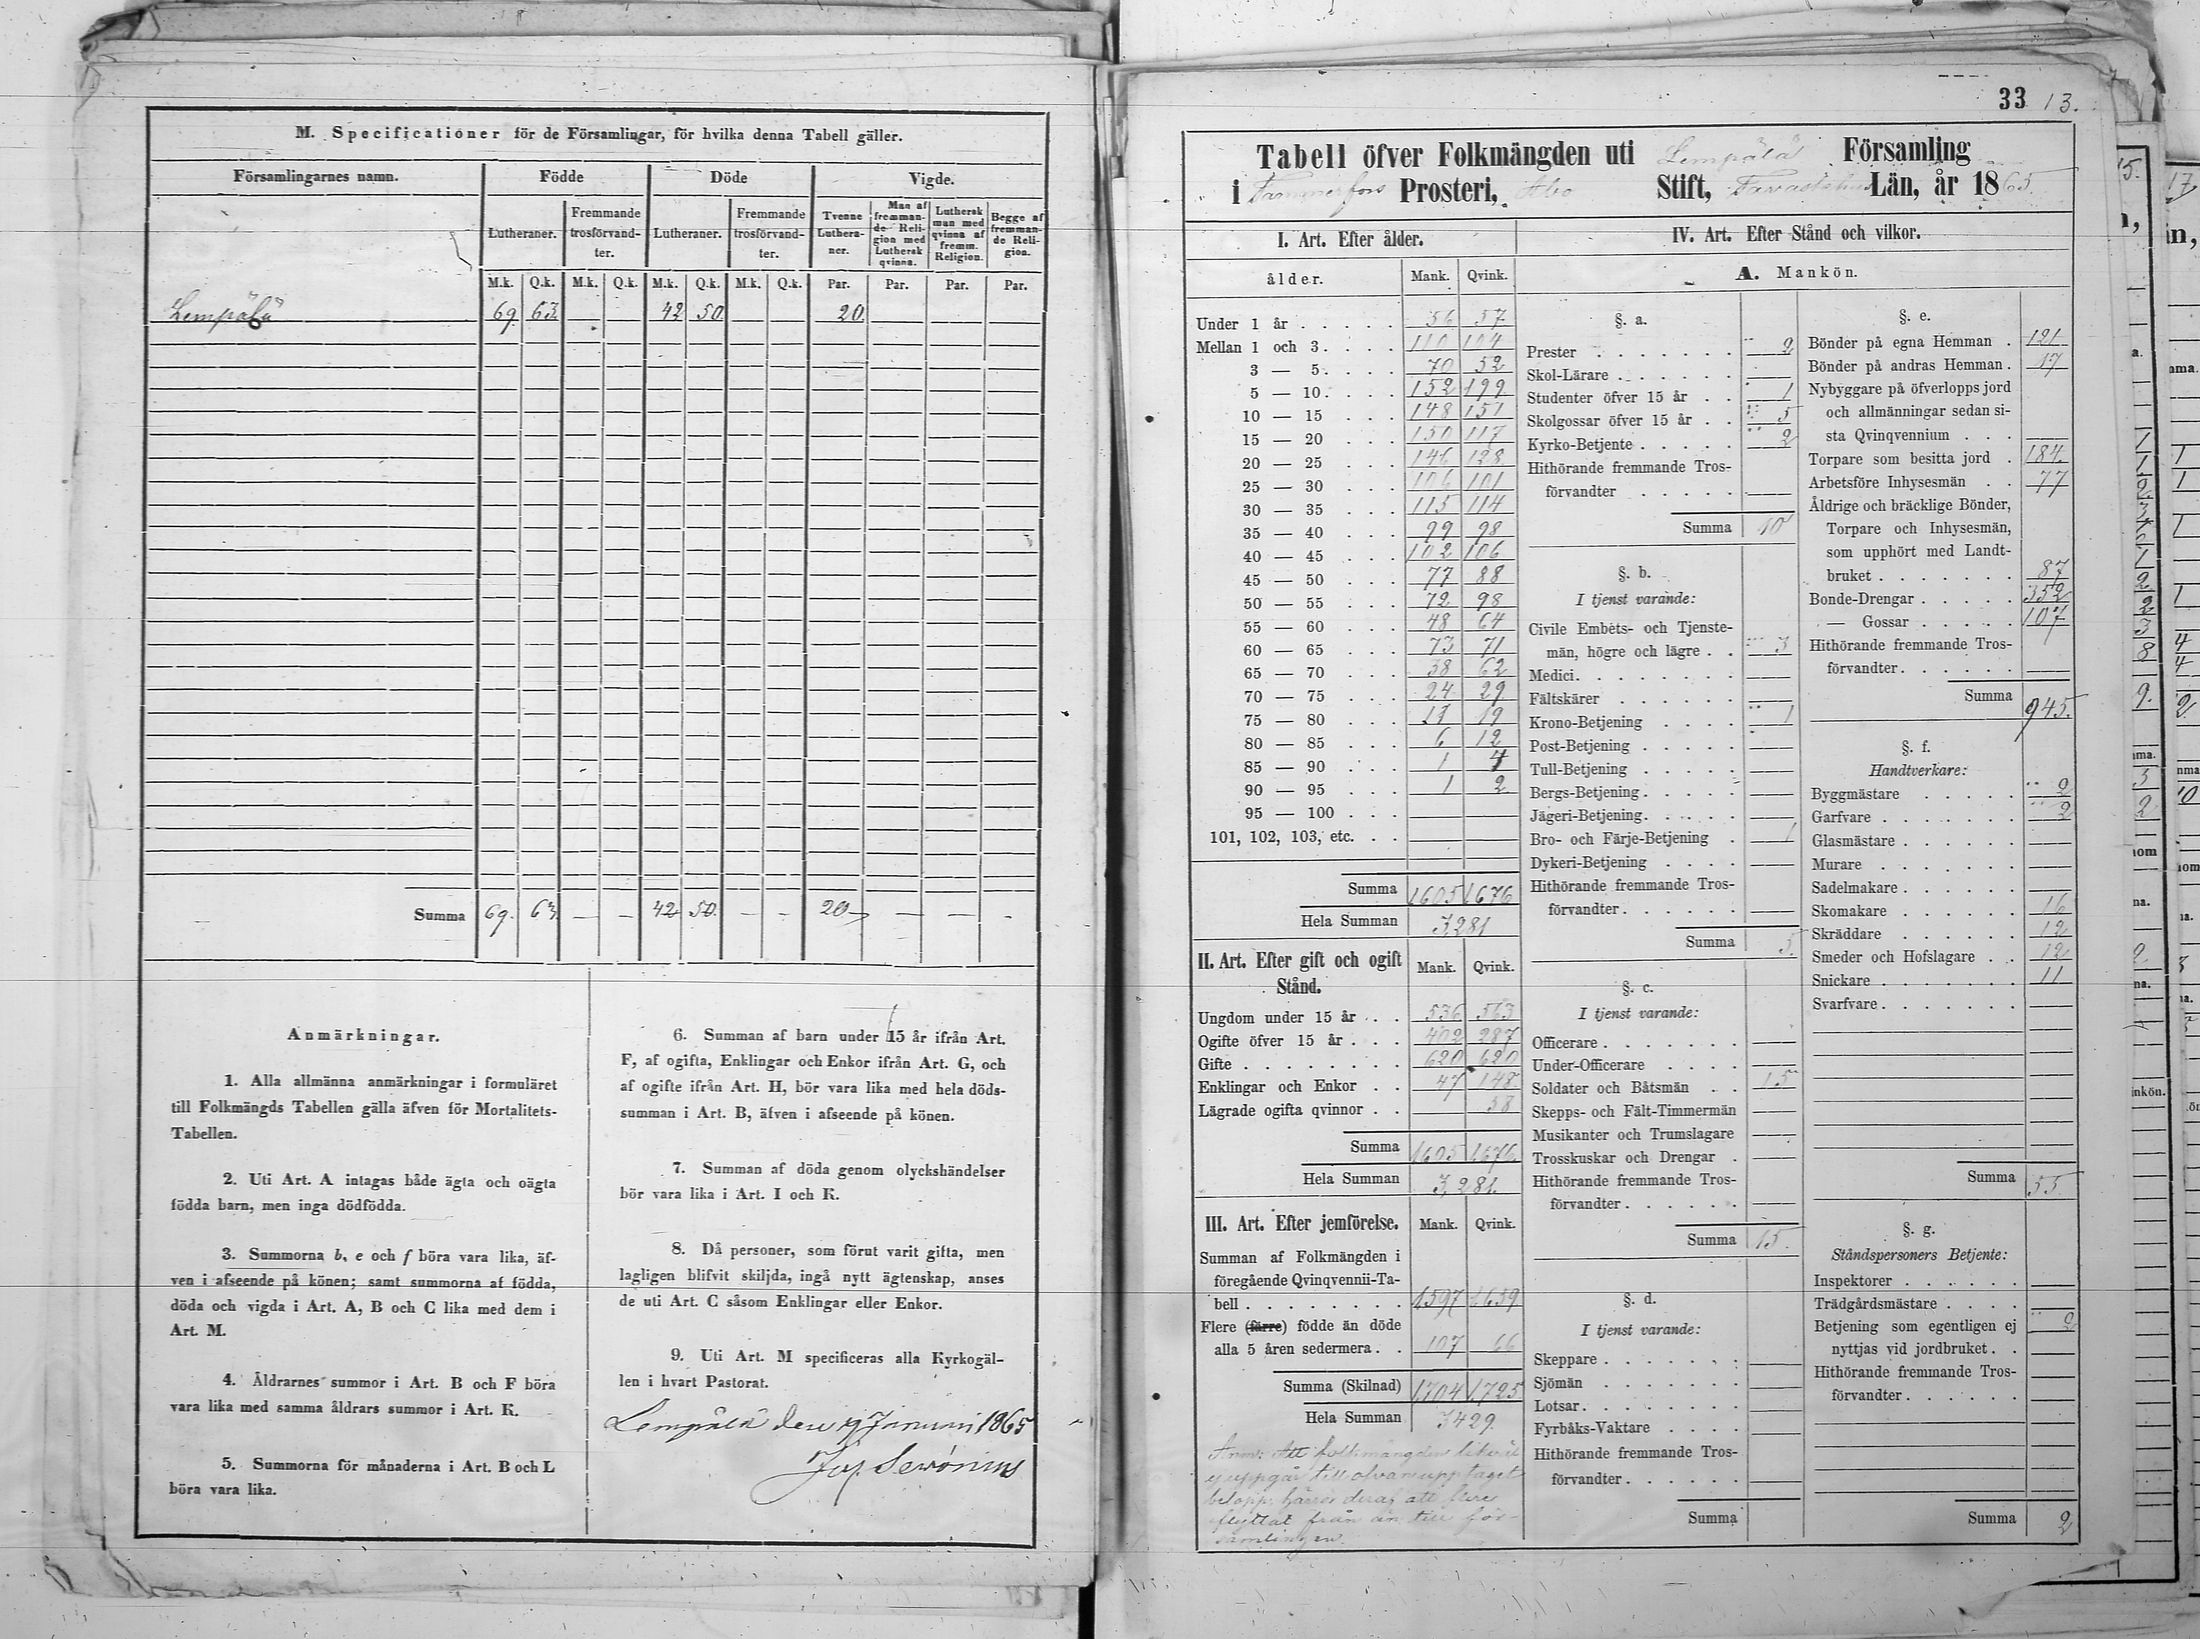 M. Specificationer för de Församlingar, för hvilka denna Tabell gäller.
Församlingarnes namn. Födde Döde Vigde.
Lutheraner. Fremmande trosförvandter. Lutheraner. Fremmande trosförvandter. Tvenne Lutheraner. Man af fremmande Religion med Luthersk qvinna. Luthersk man med qvinna af fremm. Religion. Begge af fremmande Religion.
M.k. Q.k. M.k. Q.k. M.k. Q.k. M.k. Q.k. Par. Par. Par. Par.
Lempälä 69. 63. — — 42 50. 20.
Summa 69. 63. — — 42 50. — — 20 — — — —
Anmärkningar.
1. Alla allmänna anmärkningar i formuläret
till Folkmängds Tabellen gälla äfven för Mortalitets-
Tabellen.
2. Uti Art. A intagas både ägta och oägta
födda barn, men inga dödfödda.
3. Summorna b, e och f böra vara lika, äf-
ven i afseende på könen; samt summorna af födda,
döda och vigda i Art. A, B och C lika med dem i
Art. M.
4. Åldrarnes summor i Art. B och F böra
vara lika med samma åldrars summor i Art. K.
5. Summorna för månaderna i Art. B och L
böra vara lika.
6. Summan af barn under 15 år ifrån Art.
F, af ogifta, Enklingar och Enkor ifrån Art. G, och
af ogifte ifrån Art. H, bör vara lika med hela döds-
summan i Art. B, äfven i afseende på könen.
7. Summan af döda genom olyckshändelser
bör vara lika i Art. I och K.
8. Då personer, som förut varit gifta, men
lagligen blifvit skiljda, ingå nytt ägtenskap, anses
de uti Art. C såsom Enklingar eller Enkor.
9. Uti Art. M specificeras alla Kyrkogäl-
len i hvart Pastorat.
Lempälä den 1865
33 13.
Tabell öfver Folkmängden uti Lempälä Församling
i Tammerfors Prosteri, Åbo Stift, Tavastehus Län, år 1865.
I. Art. Efter ålder.
ålder. Mank. Qvink.
Under 1 år . . . . . 56 57
Mellan 1 och 3. . . . 110 104
3 — 5. . . . 70 52
5 — 10. . . . 152 199
10 — 15 . . . 148 151
15 — 20 . . . 150 117
20 — 25 . . . 146 128
25 — 30 . . . 106 101
30 — 35 . . . 115 114
35 — 40 . . . 99 98
40 — 45 . . . 102 106
45 — 50 . . . 77 88
50 — 55 . . . 72 98
55 — 60 . . . 48 64
60 — 65 . . . 73 71
65 — 70 . . . 38 62
70 — 75 . . . 24 29
75 — 80 . . . 19
80 — 85 . . . 6 12
85 — 90 . . . 1 4
90 — 95 . . . 1 2
95 — 100 . . .
101, 102, 103, etc. . .
Summa 1605 1676
Hela Summan 3,281
II. Art. Efter gift och ogift Stånd. Mank. Qvink.
Ungdom under 15 år . . 536 563
Ogifte öfver 15 år . . . 402 287
Gifte . . . . . . . . 620 620
Enklingar och Enkor . . 47 148
Lägrade ogifta qvinnor . . 58
Summa 1605 1676
Hela Summan 3,281.
III. Art. Efter jemförelse. Mank. Qvink.
Summan af Folkmängden i
föregående Qvinqvennii-Ta-
bell . . . . . . . . 1597 1659
Flere (färre) födde än döde
alla 5 åren sedermera . . 107 66
Summa (Skilnad) 1,704 1,725
Hela Summan 3429.
Anm: Att folkmängden
ej uppgår till ofvan upptaget
belopp, härrör deraf att flere
flyttat från än till för-
samlingen.
IV. Art. Efter Stånd och vilkor.
A. Mankön.
§. a.
Prester . . . . . . . 2
Skol-Lärare . . . . . . —
Studenter öfver 15 år . . 1
Skolgossar öfver 15 år . . 5
Kyrko-Betjente . . . . . 2
Hithörande fremmande Tros-
förvandter . . . . . —
Summa 10
§. b.
I tjenst varande:
Civile Embets- och Tjenste-
män, högre och lägre . . 3
Medici. . . . . . . . —
Fältskärer . . . . . . —
Krono-Betjening . . . . 1
Post-Betjening . . . . . —
Tull-Betjening . . . . . —
Bergs-Betjening . . . . . —
Jägeri-Betjening. . . . . —
Bro- och Färje-Betjening . 1
Dykeri-Betjening . . . . —
Hithörande fremmande Tros-
förvandter . . . . . . —
Summa 5.
§. c.
I tjenst varande:
Officerare . . . . . . . —
Under-Officerare . . . . —
Soldater och Båtsmän . . 15
Skepps- och Fält-Timmermän —
Musikanter och Trumslagare —
Trosskuskar och Drengar . —
Hithörande fremmande Tros-
förvandter . . . . . . —
Summa 15.
§. d.
I tjenst varande:
Skeppare . . . . . . . —
Sjömän . . . . . . . —
Lotsar . . . . . . . . —
Fyrbåks-Vaktare . . . . —
Hithörande fremmande Tros-
förvandter . . . . . . —
Summa
§. e.
Bönder på egna Hemman . 121
Bönder på andras Hemman . 17
Nybyggare på öfverlopps jord
och allmänningar sedan si-
sta Qvinqvennium . . . —
Torpare som besitta jord . 184.
Arbetsföre Inhysesmän . . 77
Åldrige och bräcklige Bönder,
Torpare och Inhysesmän,
som upphört med Landt-
bruket . . . . . . . 87
Bonde-Drengar . . . . . 352
— Gossar . . . . . 107
Hithörande fremmande Tros-
förvandter . . . . . . —
Summa 945.
§. f.
Handtverkare:
Byggmästare . . . . . 2
Garfvare . . . . . . . 2
Glasmästare . . . . . . —
Murare . . . . . . . —
Sadelmakare . . . . . . —
Skomakare . . . . . . 16
Skräddare . . . . . . 12
Smeder och Hofslagare . . 12
Snickare . . . . . . . 11
Svarfvare . . . . . . . —
Summa 55.
§. g.
Ståndspersoners Betjente:
Inspektorer . . . . . . —
Trädgårdsmästare . . . . —
Betjening som egentligen ej
nyttjas vid jordbruket . . 2
Hithörande fremmande Tros-
förvandter . . . . . . —
Summa 2